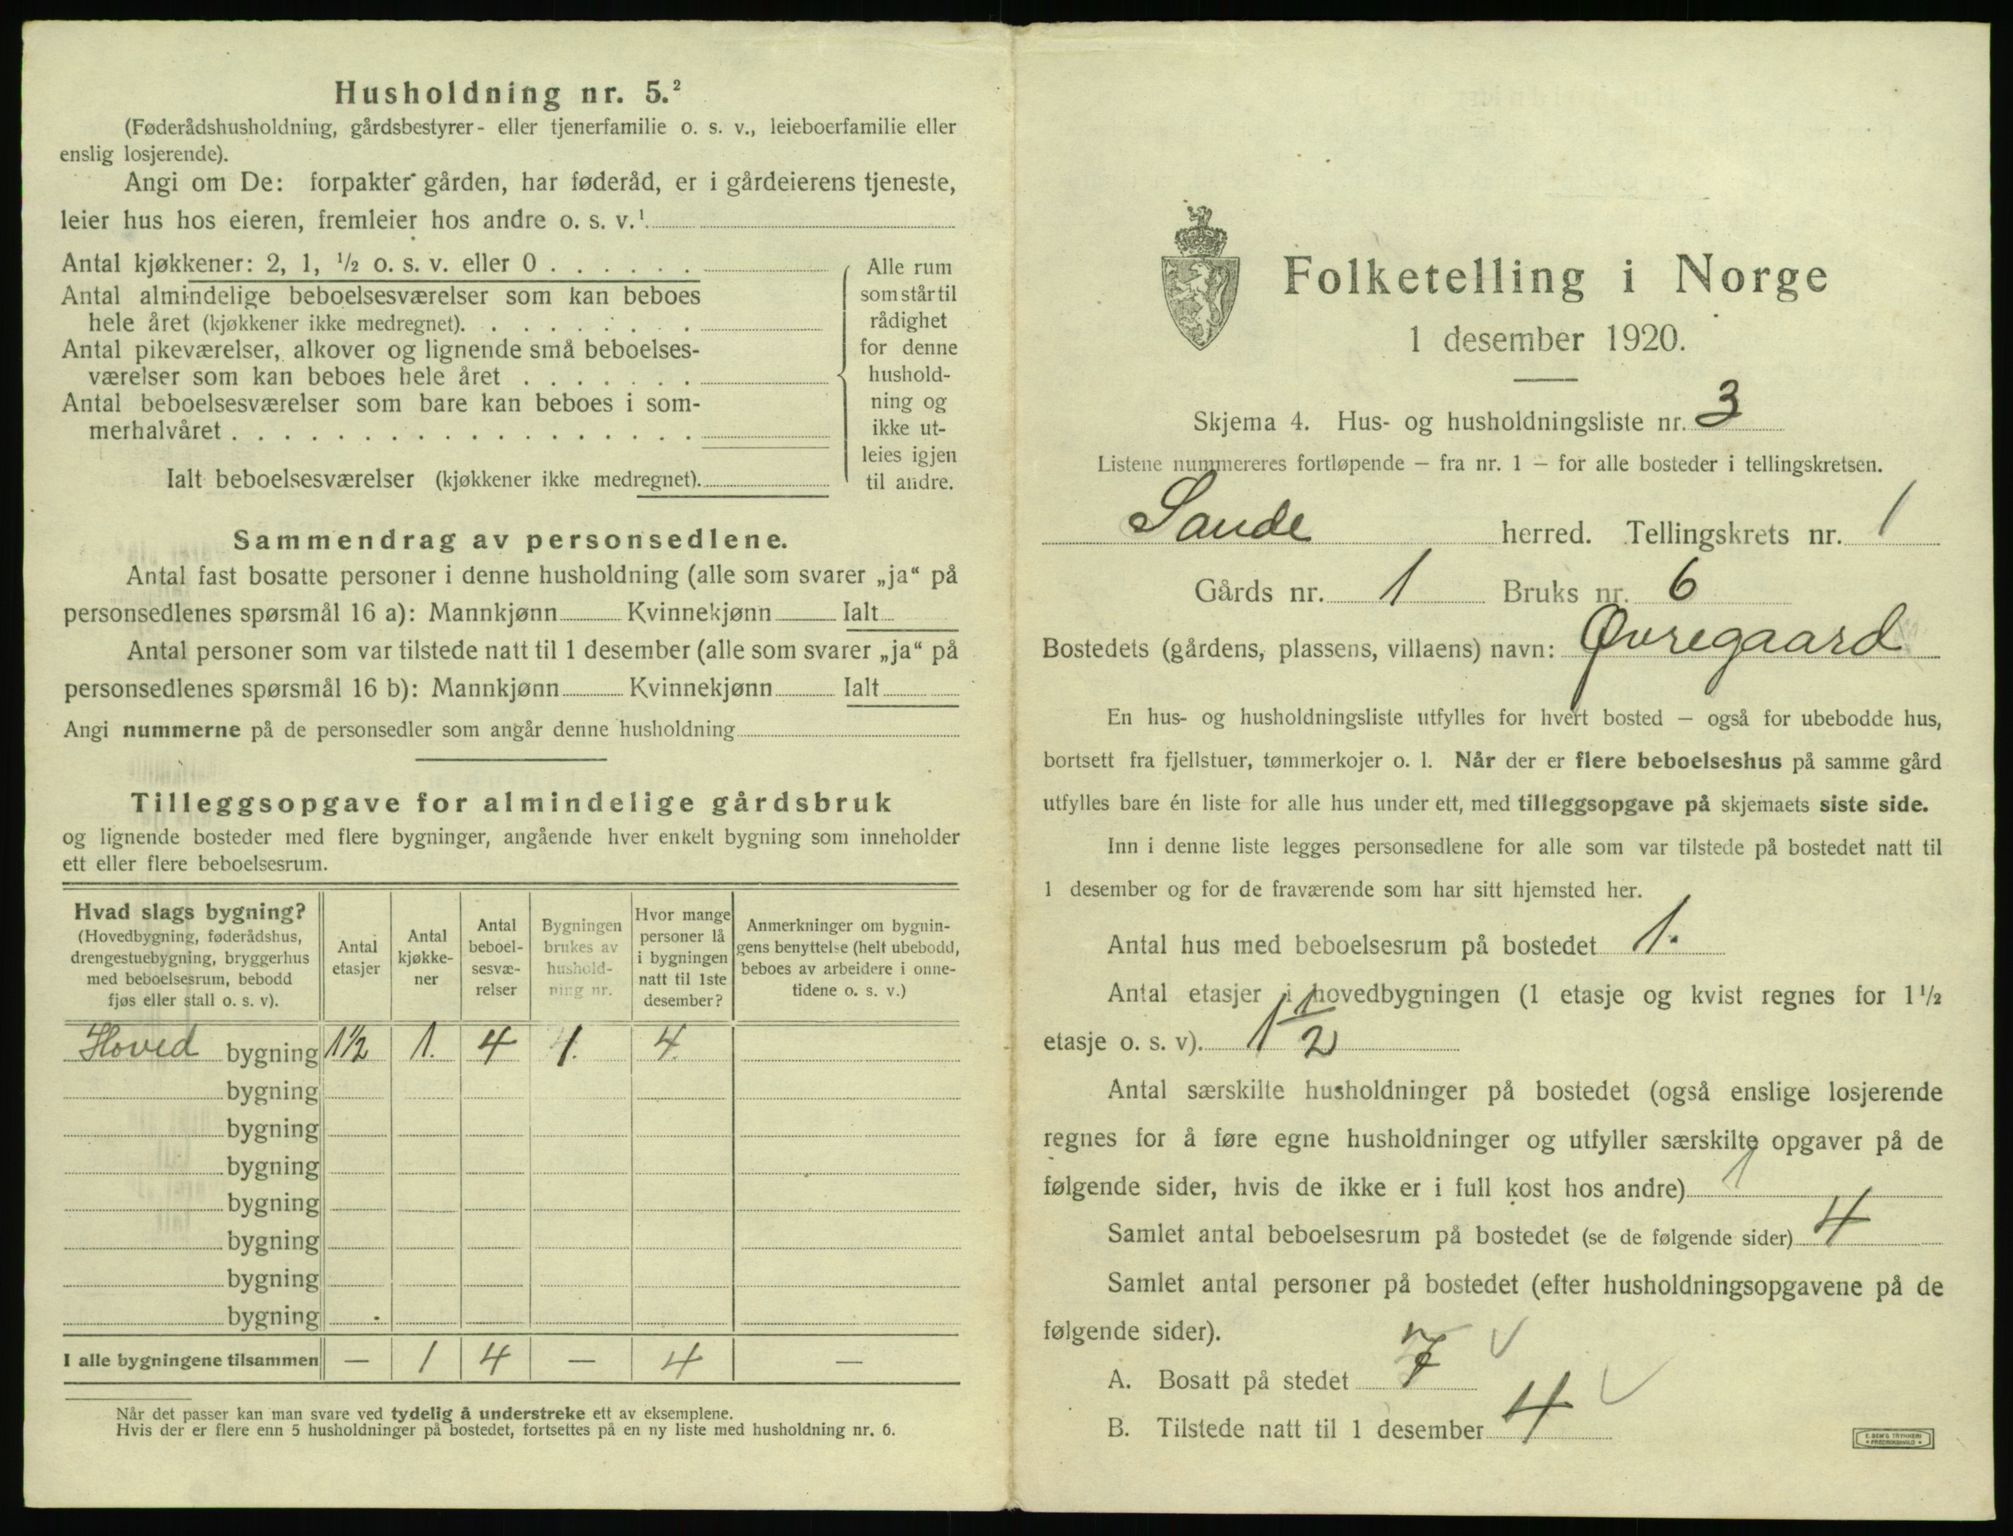 Husholdning nr. 5.²
(Føderådshusholdning, gårdsbestyrer- eller tjenerfamilie o. s. v., leieboerfamilie eller
enslig losjerende).
Angi om De: forpakter gården, har føderåd, er i gårdeierens tjeneste,
leier hus hos eieren, fremleier hos andre o. s. v.¹
Antal kjøkkener: 2, 1, ½ o. s. v. eller 0 . . . . . .
Antal almindelige beboelsesværelser som kan beboes
hele året (kjøkkener ikke medregnet). . . . . . . . .
Antal pikeværelser, alkover og lignende små beboelses-
værelser som kan beboes hele året . . . . . . .
Antal beboelsesværelser som bare kan beboes i som-
merhalvåret . . . . . . . . . . . . . . . . . .
Ialt beboelsesværelser (kjøkkener ikke medregnet).
Alle rum
som står til
rådighet
for denne
hushold-
ning og
ikke ut-
leies igjen
til andre.
Sammendrag av personsedlene.
Antal fast bosatte personer i denne husholdning (alle som svarer „ja“ på
personsedlenes spørsmål 16 a): Mannkjønn Kvinnekjønn Ialt
Antal personer som var tilstede natt til 1 desember (alle som svarer „ja“ på
personsedlenes spørsmål 16 b): Mannkjønn Kvinnekjønn Ialt
Angi nummerne på de personsedler som angår denne husholdning
Tilleggsopgave for almindelige gårdsbruk
og lignende bosteder med flere bygninger, angående hver enkelt bygning som inneholder
ett eller flere beboelsesrum.
Hvad slags bygning?
(Hovedbygning, føderådshus,
drengestuebygning, bryggerhus
med beboelsesrum, bebodd
fjøs eller stall o. s. v).
Antal
etasjer
Antal
kjøkke-
ner
Antal
beboel-
sesvæ-
relser
Bygningen
brukes av
hushold-
ning nr.
Hvor mange
personer lå
i bygningen
natt til 1ste
desember?
Anmerkninger om bygnin-
gens benyttelse (helt ubebodd,
beboes av arbeidere i onne-
tidene o. s. v.)
Hoved bygning 1½ 1. 4 1. 4.
bygning
bygning
bygning
bygning
bygning
bygning
bygning
I alle bygningene tilsammen — 1 4 — 4 —
Når det passer kan man svare ved tydelig å understreke ett av eksemplene.
Hvis der er flere enn 5 husholdninger på bostedet, fortsettes på en ny liste med husholdning nr. 6.
Folketelling i Norge
1 desember 1920.
Skjema 4. Hus- og husholdningsliste nr. 3
Listene nummereres fortløpende – fra nr. 1 – for alle bosteder i tellingskretsen.
Sande herred. Tellingskrets nr. 1
Gårds nr. 1 Bruks nr. 6
Bostedets (gårdens, plassens, villaens) navn: Øvregaard
En hus- og husholdningsliste utfylles for hvert bosted – også for ubebodde hus,
bortsett fra fjellstuer, tømmerkojer o. l. Når der er flere beboelseshus på samme gård
utfylles bare én liste for alle hus under ett, med tilleggsopgave på skjemaets siste side.
Inn i denne liste legges personsedlene for alle som var tilstede på bostedet natt til
1 desember og for de fraværende som har sitt hjemsted her.
Antal hus med beboelsesrum på bostedet 1.
Antal etasjer i hovedbygningen (1 etasje og kvist regnes for 1½
etasje o. s. v). 1½
Antal særskilte husholdninger på bostedet (også enslige losjerende
regnes for å føre egne husholdninger og utfyller særskilte opgaver på de
følgende sider, hvis de ikke er i full kost hos andre) 1
Samlet antal beboelsesrum på bostedet (se de følgende sider) 4
Samlet antal personer på bostedet (efter husholdningsopgavene på de
følgende sider).
A. Bosatt på stedet 7 ✓
B. Tilstede natt til 1 desember 4 ✓